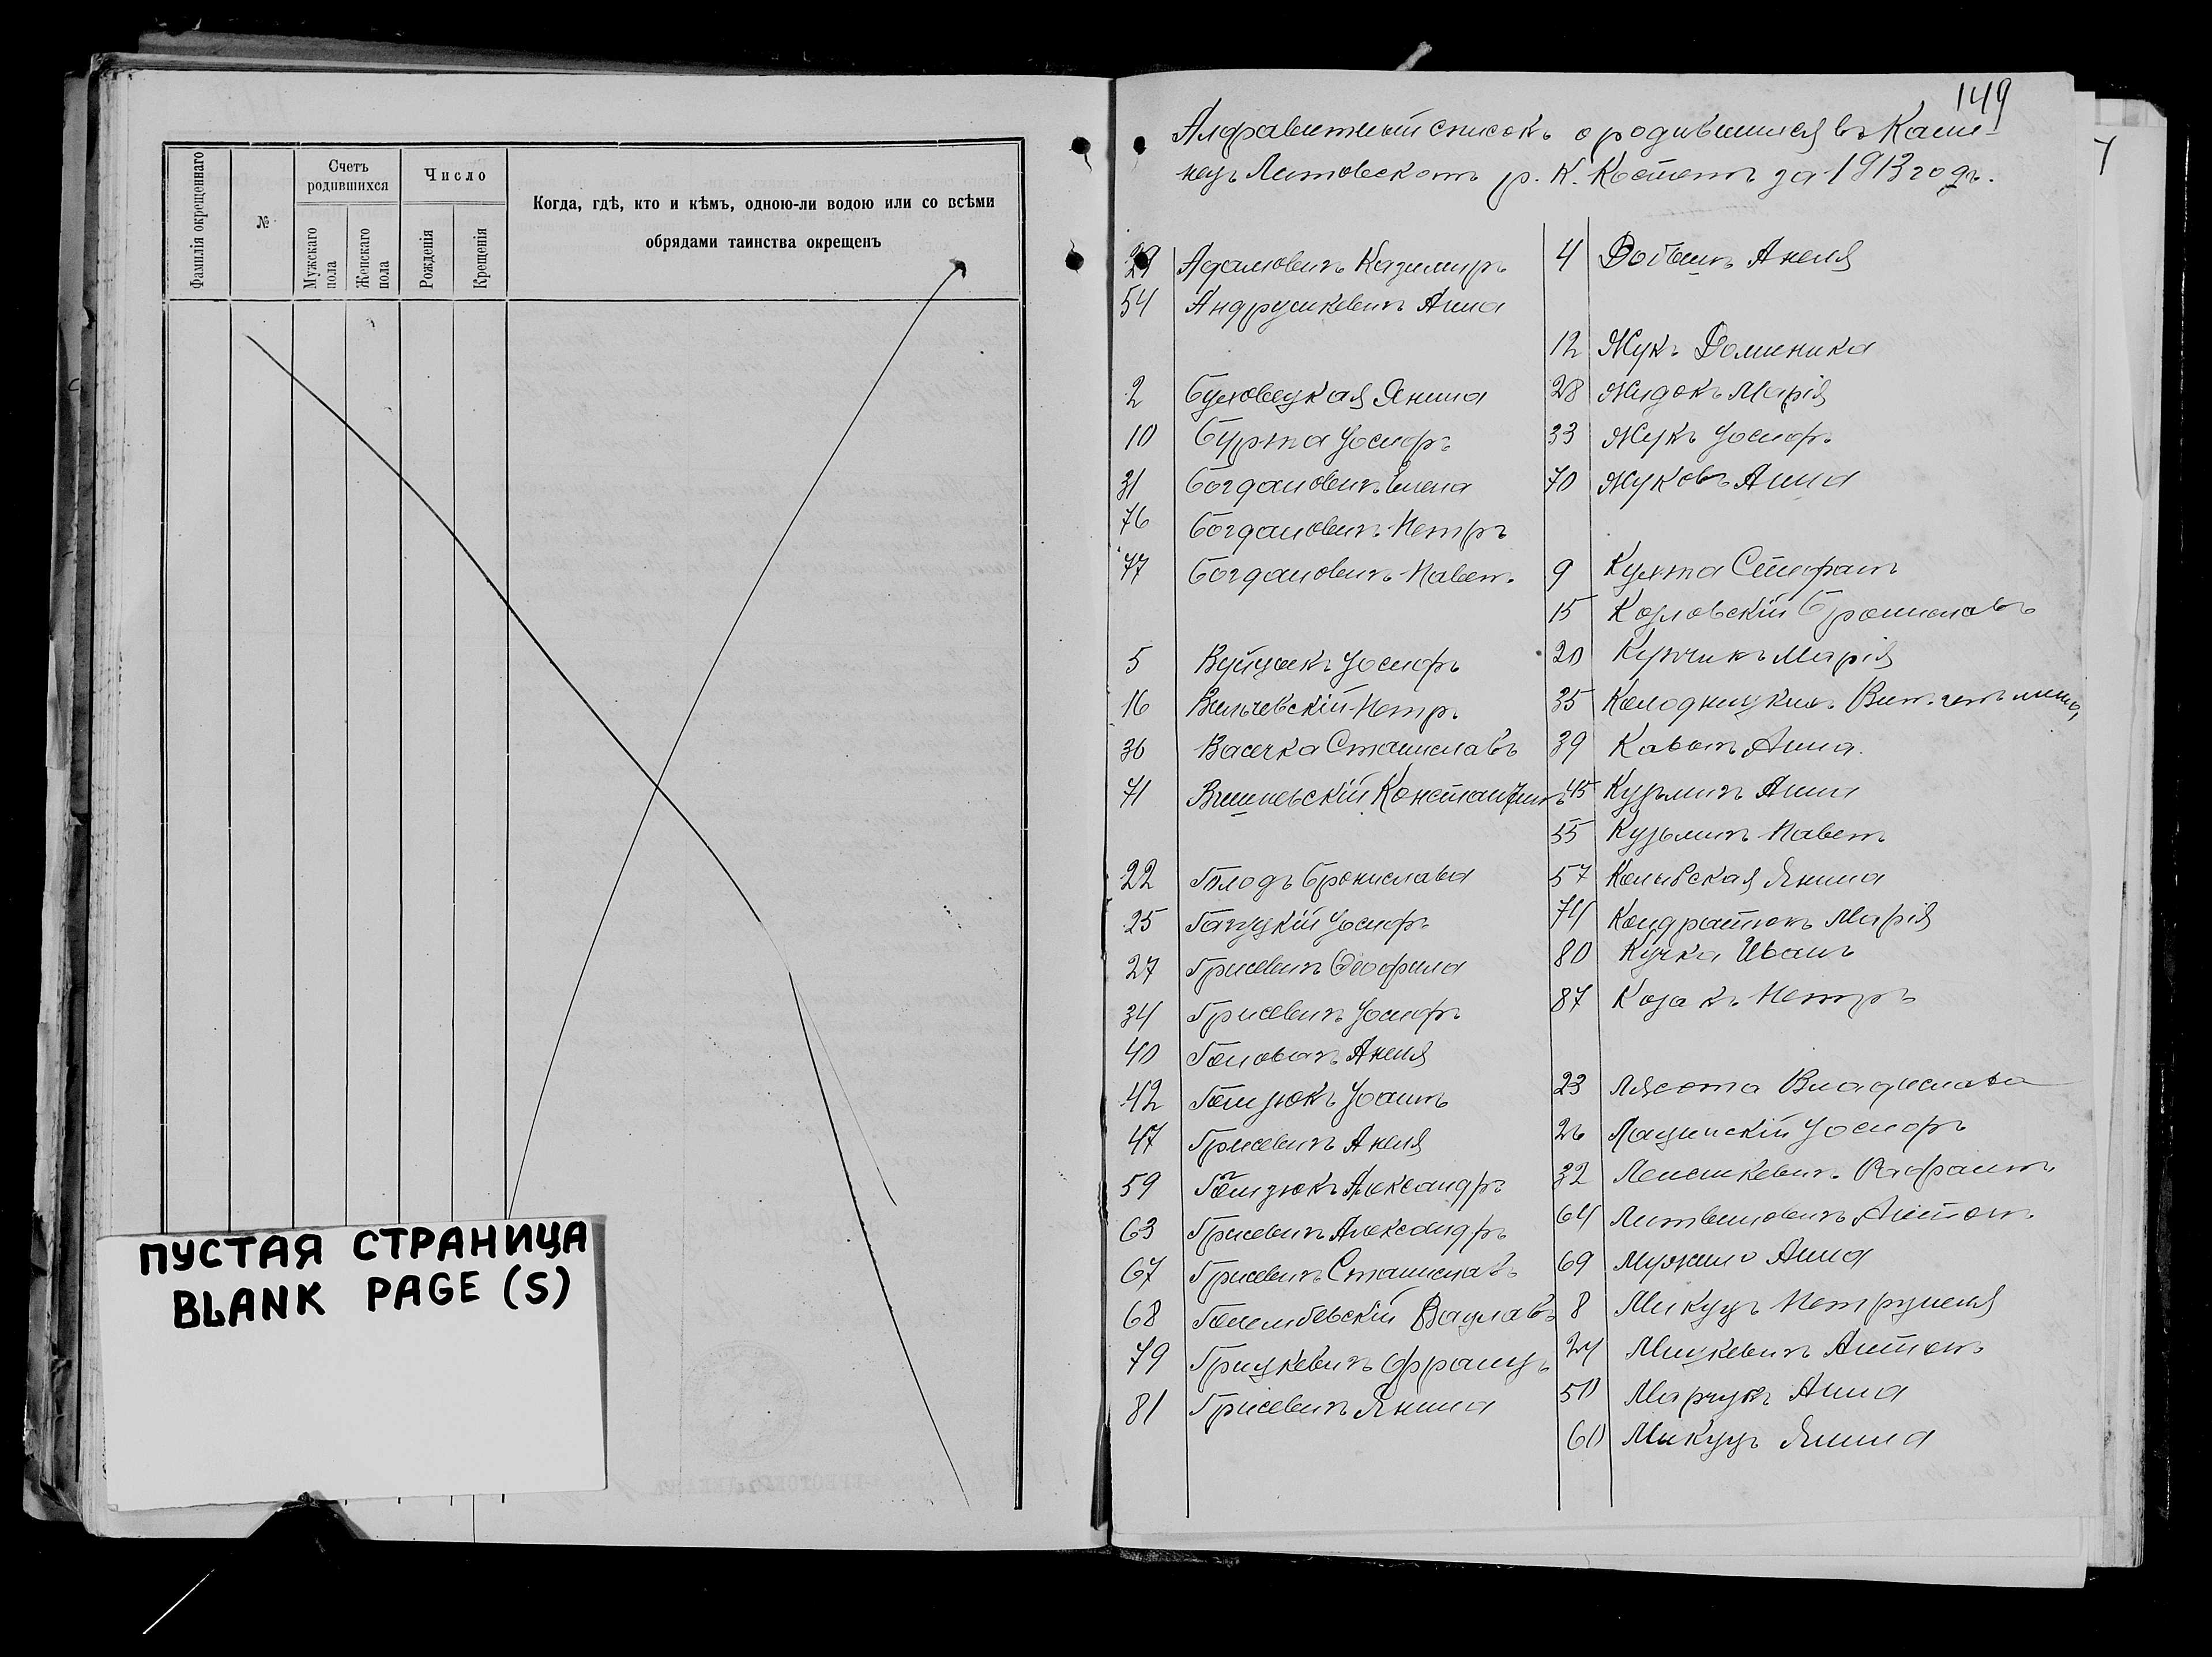 Фамилія окрещеннаго
№
Счетъ родившихся
Мужскаго пола
Женскаго пола
Число
Рожденія
Крещенія
Когда, гдѣ, кто и кѣмъ, одною-ли водою или со всѣми
обрядами таинства окрещенъ
ПУСТАЯ СТРАНИЦА
BLANK PAGE (S)
149
Алфавитный списокъ о родившихся въ Каме-
нецъ Литовскомъ р. К. Костелѣ за 1913 годъ.
29 Адамовичъ Казимиръ
54 Андрушкевичъ Анна
2 Буховецкая Янина
10 Бурта Іосифъ
31 Богдановичъ Елена
76 Богдановичъ Петръ
77 Богдановичъ Павелъ
5 Вуйцикъ Іосифъ
16 Вильчевскій Петръ
30 Васечка Станиславъ
71 Вишневскій Константинъ
22 Голодъ Бронислава
25 Гацуцкій Іосифъ
27 Грисевичъ Ѳеофила
34 Грисевичъ Іосифъ
40 Головачъ Анеля
42 Іоаннъ
47 Грисевичъ Анеля
59 Александръ
63 Грисевичъ Александръ
67 Грисевичъ Станиславъ
68 Голембевскій Вацлавъ
79 Грицкевичъ Францъ
81 Грисевичъ Янина
4 Анеля
12 Жукъ Доминика
28 Жидокъ Марія
33 Жукъ Іосифъ
70 Жуковъ Анна
9 Кухта Стефанъ
15 Козловскій Брониславъ
20 Марія
35
39 Анна
45 Кузьмичъ Анна
55 Кузьмичъ Павелъ
57 Янина
74 Кондратюкъ Марія
80 Кучка Иванъ
87 Козакъ Петръ
23 Лясота Владислава
26 Лащинскій Іосифъ
32
64 Литвиновичъ Антонъ
69 Анна
8 Микуцъ Петрунеля
24 Мицкевичъ Антонъ
50 Марчукъ Анна
60 Микуцъ Янина